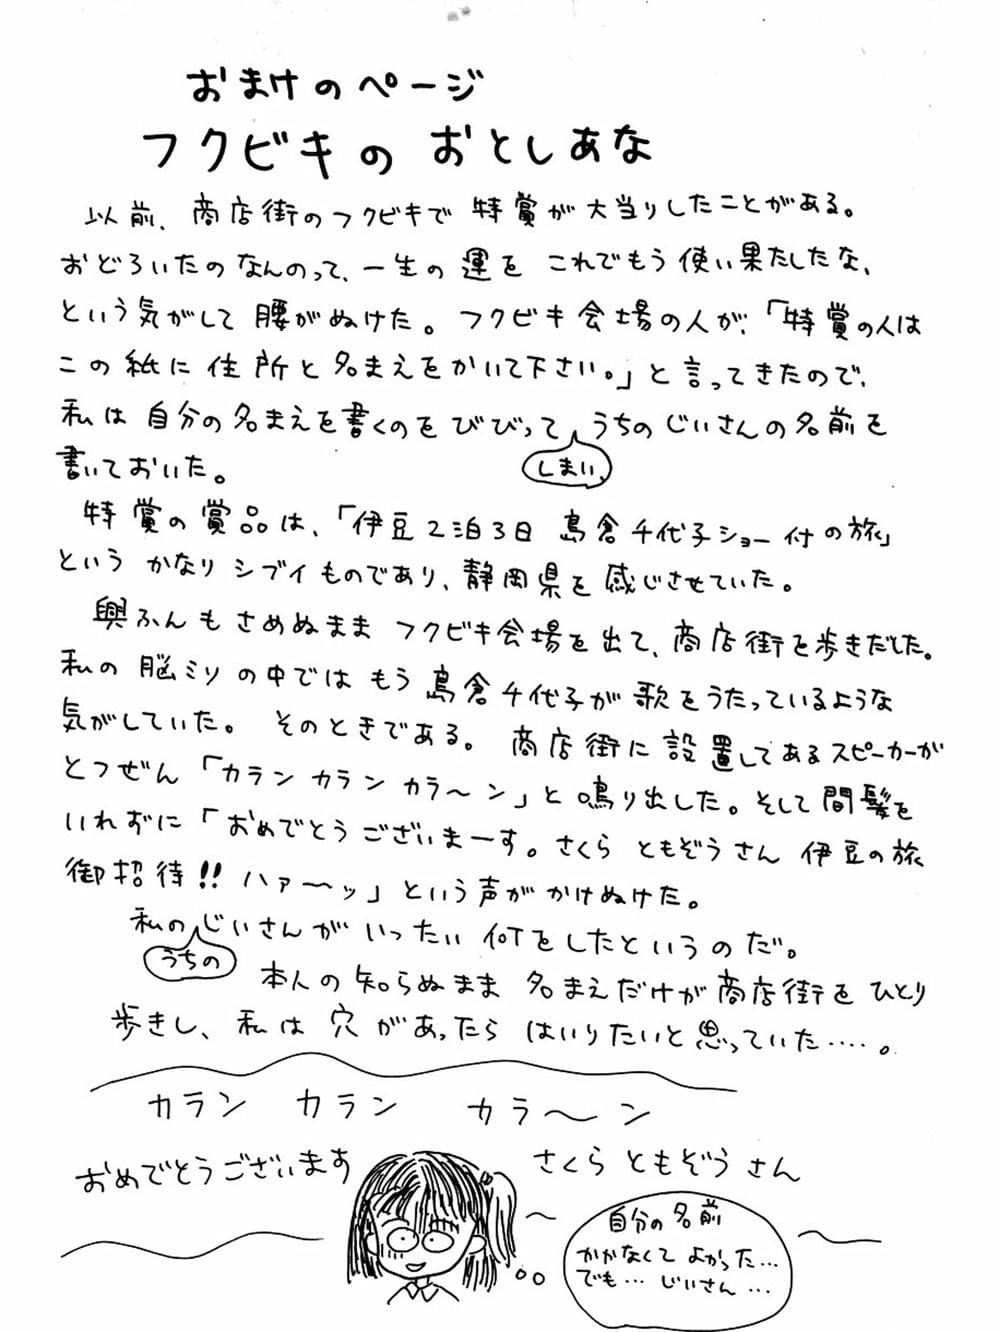 おまけのページ
フクビキの おとしあな
以前、商店街のフクビキで 特賞が大当りしたことがある。
おどろいたのなんのって、一生の運を これでもう使い果たしたな、
という気がして 腰がぬけた。 フクビキ会場の人が、「特賞の人は
この紙に住所と名まえをかいて下さい。」と言ってきたので、
私は自分の名まえを書くのをびびって うちのじいさんの名前を
しまい、
書いておいた。
特賞の賞品は、「伊豆2泊3日 島倉千代子ショー付の旅」
という かなりシブイものであり、静岡県を感じさせていた。
興ふんもさめぬまま フクビキ会場を出て、商店街を歩きだした。
私の脳ミソの中では もう 島倉千代子が歌をうたっているような
気がしていた。 そのときである。 商店街に設置してあるスピーカーが
とつぜん「カラン カラン カラ〜ン」と鳴り出した。そして間髪を
いれずに「おめでとうございまーす。さくら ともぞうさん 伊豆の旅
御招待!! ハァ〜ッ」という声が かけぬけた。
私のじいさんが いったい何をしたというのだ。
うちの
本人の知らぬまま 名まえだけが商店街をひとり
歩きし、私は 穴があったら はいりたいと思っていた……。
カラン カラン カラ〜ン
おめでとうございます さくら ともぞうさん
自分の名前
かかなくて よかった…
でも… じいさん…